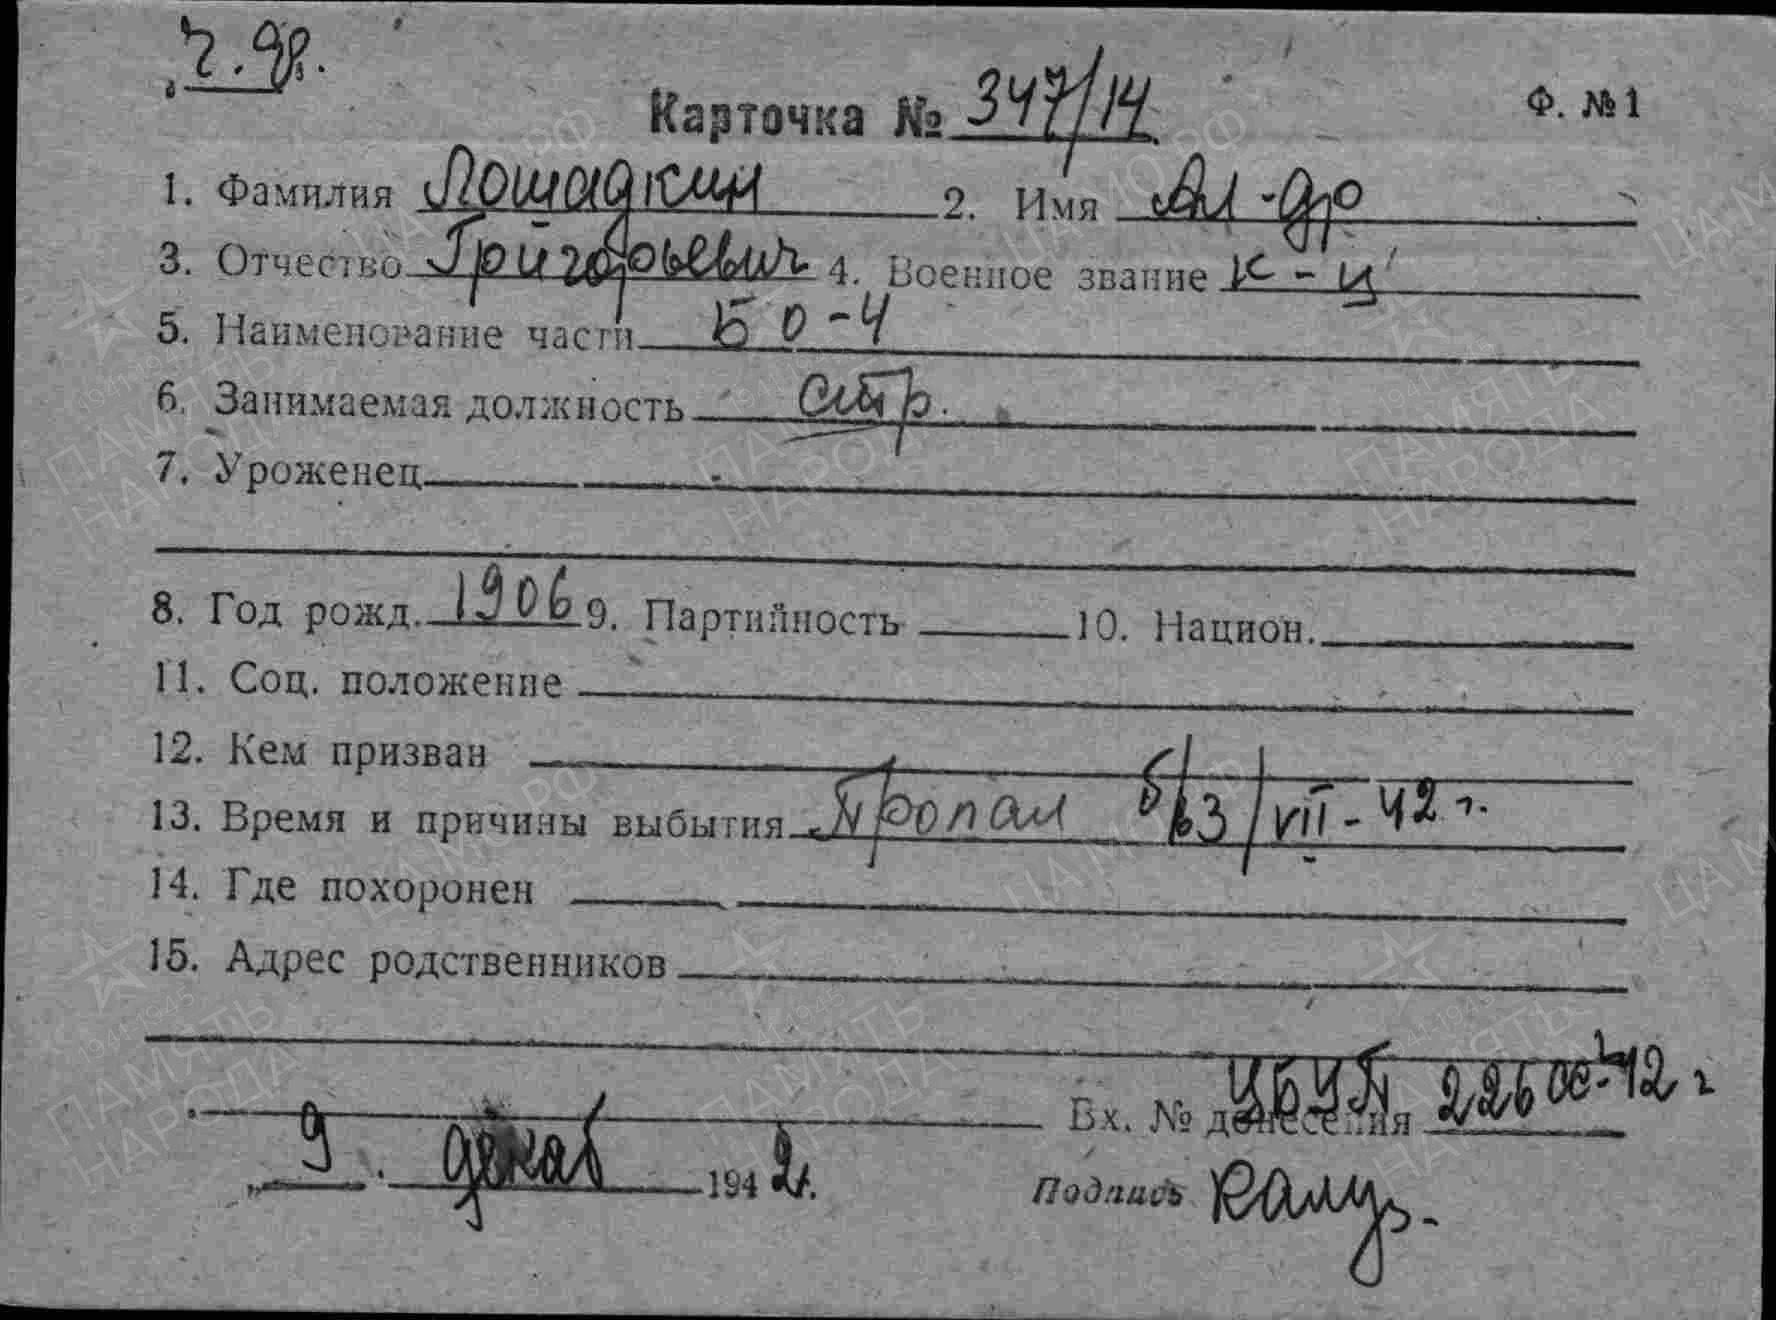 ч. др.
Карточка № 347/14 Ф. № 1
1. Фамилия Лошадкин 2. Имя Ал-др
3. Отчество Григорьевич 4. Военное звание к-ц
5. Наименование части БО-4
6. Занимаемая должность стр.
7. Уроженец
8. Год рожд. 1906 9. Партийность 10. Национ.
11. Соц. положение
12. Кем призван
13. Время и причины выбытия Пропал б/в 3/VII-42 г.
14. Где похоронен
15. Адрес родственников
Вх. № донесения 226
„ 9 . декаб 1942.
Подпись